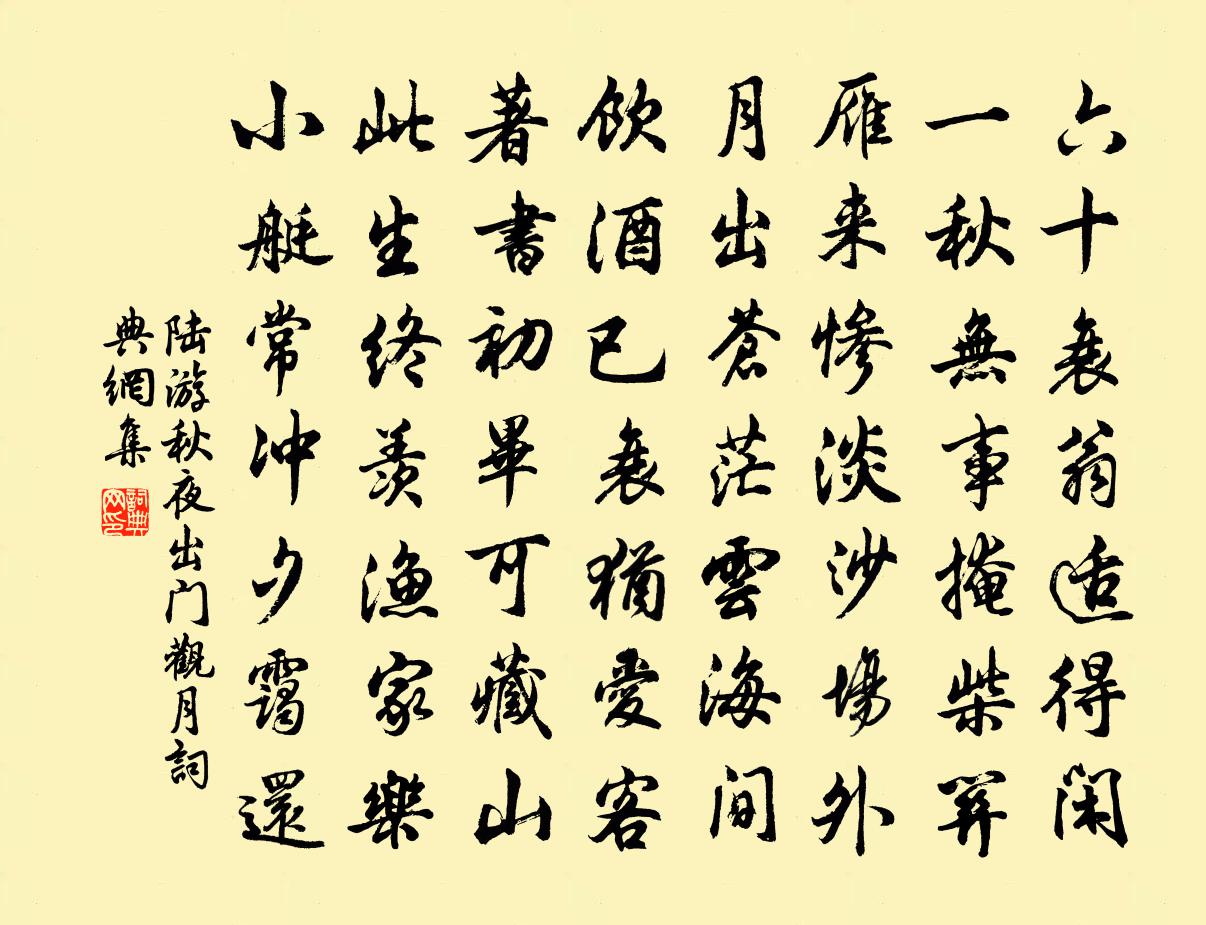 六十衰翁适得闲
一秋無事掩柴關
雁来慘淡沙場外
月出蒼茫雲海間
飲酒已衰猶愛客
著書初畢可藏山
此生終羨漁家樂
小艇常冲夕靄還
陆游秋夜出门觀月詞
典網集
詞典网印